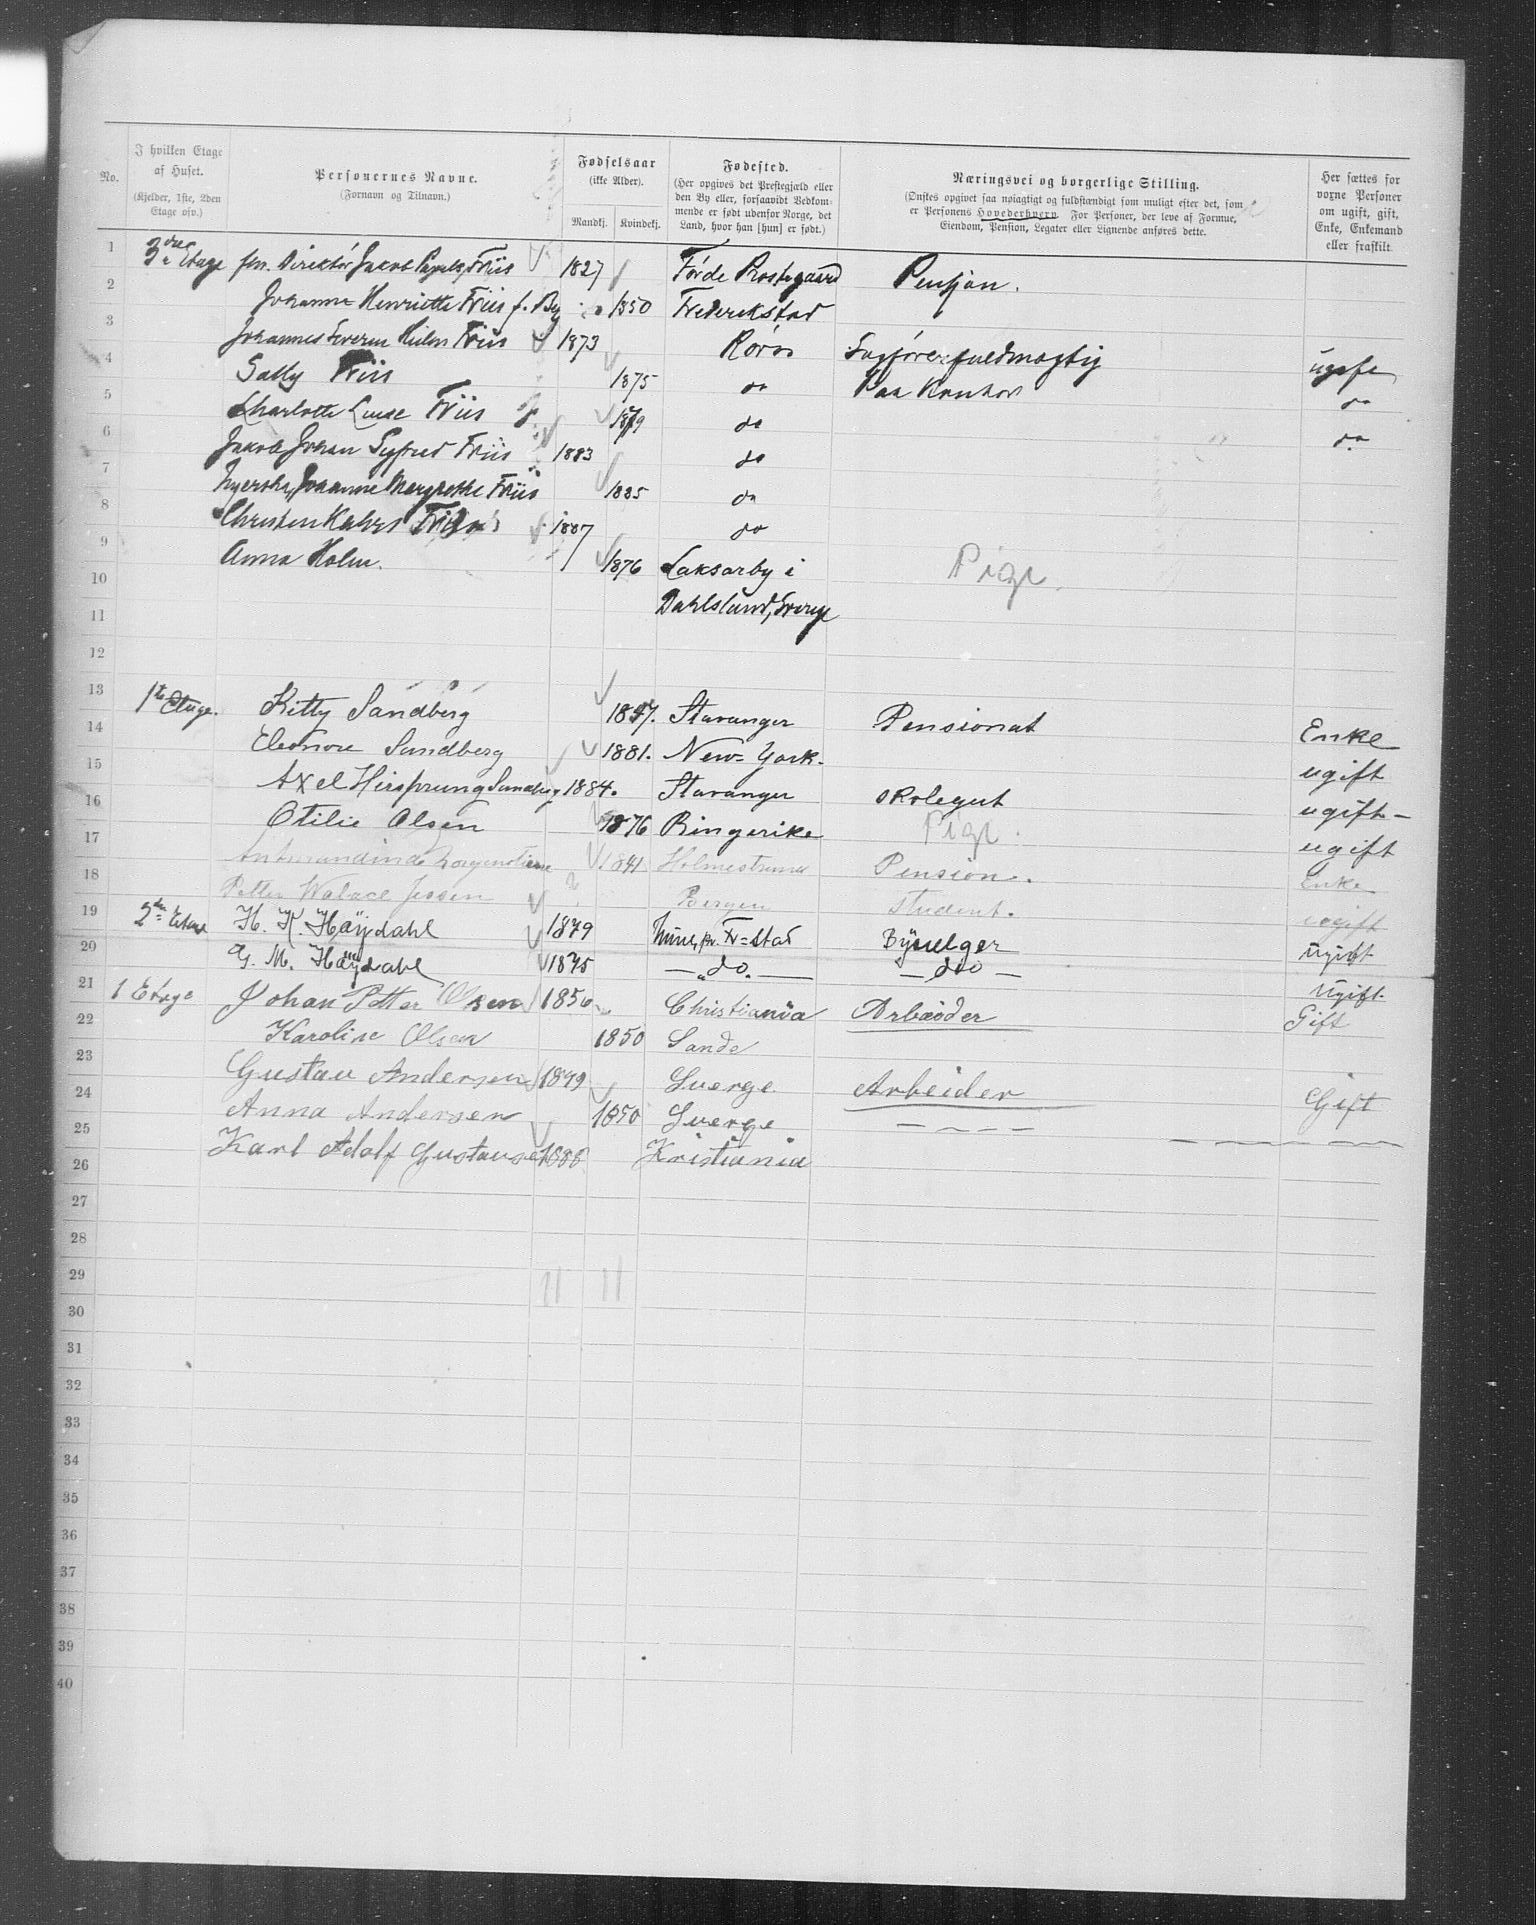 No.
I hvilken Etage af Huset. (Kjelder, 1ste, 2den Etage osv.)
Personernes Navne. (Fornavn og Tilnavn.)
Fødselsaar (ikke Alder). Mandkj. Kvindekj.
Fødested. (Her opgives det Prestegjæld eller den By eller, forsaavidt Vedkommende er født udenfor Norge, det Land, hvor han [hun] er født.)
Næringsvei og borgerlige Stilling. (Ønskes opgivet saa nøiagtigt og fuldstændigt som muligt efter det, som er Personens Hovederhverv. For Personer, der leve af Formue, Eiendom, Pension, Legater eller Lignende anføres dette.
Her sættes for voxne Personer om ugift, gift, Enke, Enkemand eller fraskilt.
1 3die Etage Direktør Jakob Friis 1827 Førde Prestegaard Pensjon.
2 Johanne Henriette Friis f. By 1850 Frederikstad
3 Johannes Severin Friis 1873 Røros Sagførerfuldmægtig
4 Sally Friis 1875 do Paa Kontor
5 Charlotte Luise Friis 1879 do do
6 Jakob Johan Friis 1883 do do
7 Johanne Margrethe Friis 1885 do
8 Friis 1887 do
9 Anna Holm. 1876 Laksarby i
10 Dahlsland, Sverige Pige.
11
12
13 1ste Etage. Kitty Sandberg 1857. Stavanger Pensionat Enke
14 Eleonore Sandberg 1881. New-York. ugift
15 Axel Hirsprung Sandberg 1884. Stavanger skolegut ugift-
16 Otilie Olsen 1876 Ringerike Pige. ugift
17 1841 Holmestrand Pension. Enke
18 Petter Walace Jessen Bergen Student. ugift
19 2den Etage H. K. Høydahl 1879 Fr=stad Byselger ugift
20 G. M. Høydahl 1875 —„do.— — do — ugift.
21 1 Etage Johan Petter Olsen 1856 Christiania Arbeider Gift
22 Karoline Olsen 1850 Sande
23 Gustav Andersen 1849 Sverge Arbeider Gift
24 Anna Andersen 1850 Sverge — — — —
25 Karl Adolf Gustavsen 1888 Kristiania
26
27
28
29
30
31
32
33
34
35
36
37
38
39
40